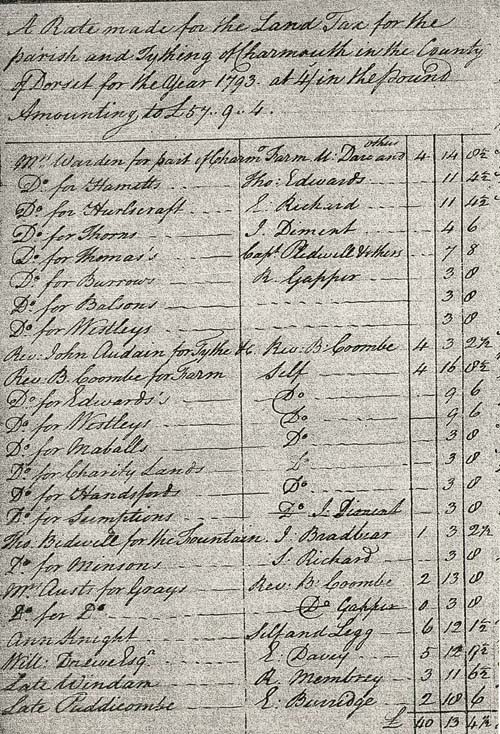 A Rate made for the Land Tax for the
parish and Tything of Charmouth in the County
of Dorset for the Year 1793. at 4/ in the Pound
Amounting to £57. 9. 4.
Mrs Warden for part of Charmo Farm M: Dare and others 4 14 8½
Do for Hamatts Tho: Edwards 11 4½
Do for Hurlscraft E. Richard 11 4½
Do for Thorns J. Diment 4 6
Do for Thomas's Capt. Pedwell & others 7 8
Do for Burrows R. Gapper 3 8
Do for Balsons 3 8
Do for Westleys 3 8
Rev: John Audain for Tythe &c. Rev: B: Coombe 4 3 2½
Rev: B. Coombe for Farm Self 4 16 8½
Do for Edwards's Do 9 6
Do for Westleys Do 9 6
Do for Maballs Do 3 8
Do for Charity Lands Do 3 8
Do for Handsfords Do 3 8
Do for Sumptions Do J. Diment 3 8
Tho. Bidwell for the Fountain J. Bradbear 1 3 2½
Do for Minsons S. Richard 3 8
Mrs Austs for Grays Rev: B: Coombe 2 13 8
Do for Do Do Gapper 0 3 8
Ann Knight Self and Legg 6 12 1½
Will: Drewe Esqr E. Davey 5 12 9½
Late Windam R. Membrey 3 11 6½
Late Puddicombe E. Burridge 2 18 6
£ 40 13 4½